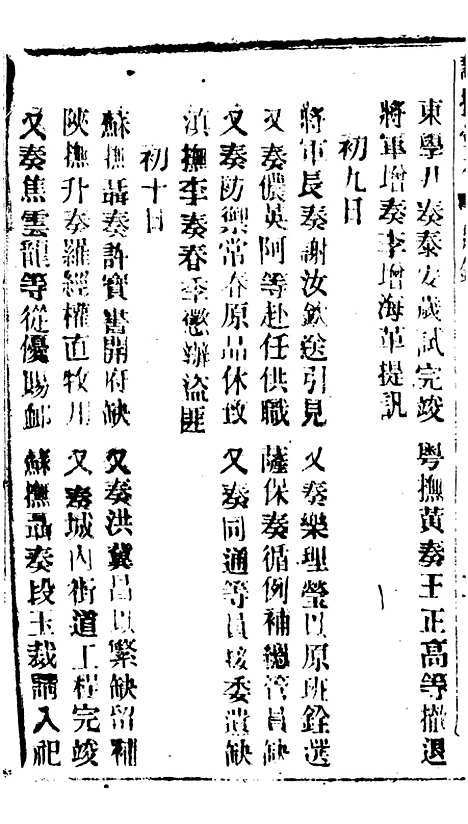 東學尹奏泰安歲試完竣　粤撫黃奏王正高等撤退
將軍增奏李增海革提訊
初九日
將軍長奏謝汝欽送引見　又奏樂理瑩以原班銓選
又奏儂英阿等赴任供職　薩保奏循例補總管員缺
又奏防禦常春原品休致　又奏同通等員接委遺缺
滇撫李奏春季懲辦盜匪
初十日
蘇撫聶奏許寶書開府缺　又奏洪冀昌以繁缺留補
陝撫升奏羅經權直牧用　又奏城內街道工程完竣
又奏焦雲龍等從優賜卹　蘇撫聶奏段玉裁請入祀